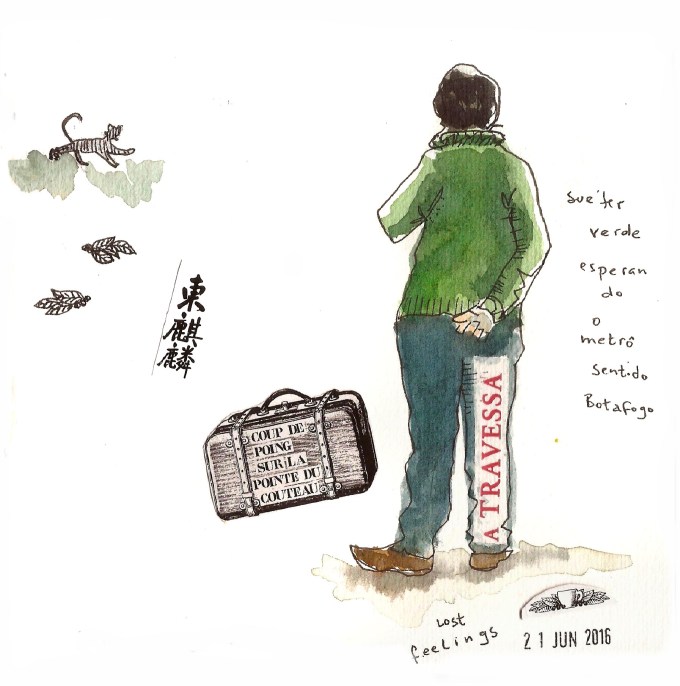 suéter
verde
esperan
do
o
metrô
sentido
Botafogo
東
麒
麟
COUP DE
POING
SUR LA
POINTE DU
COUTEAU
A TRAVESSA
Lost
feelings
21 JUN 2016